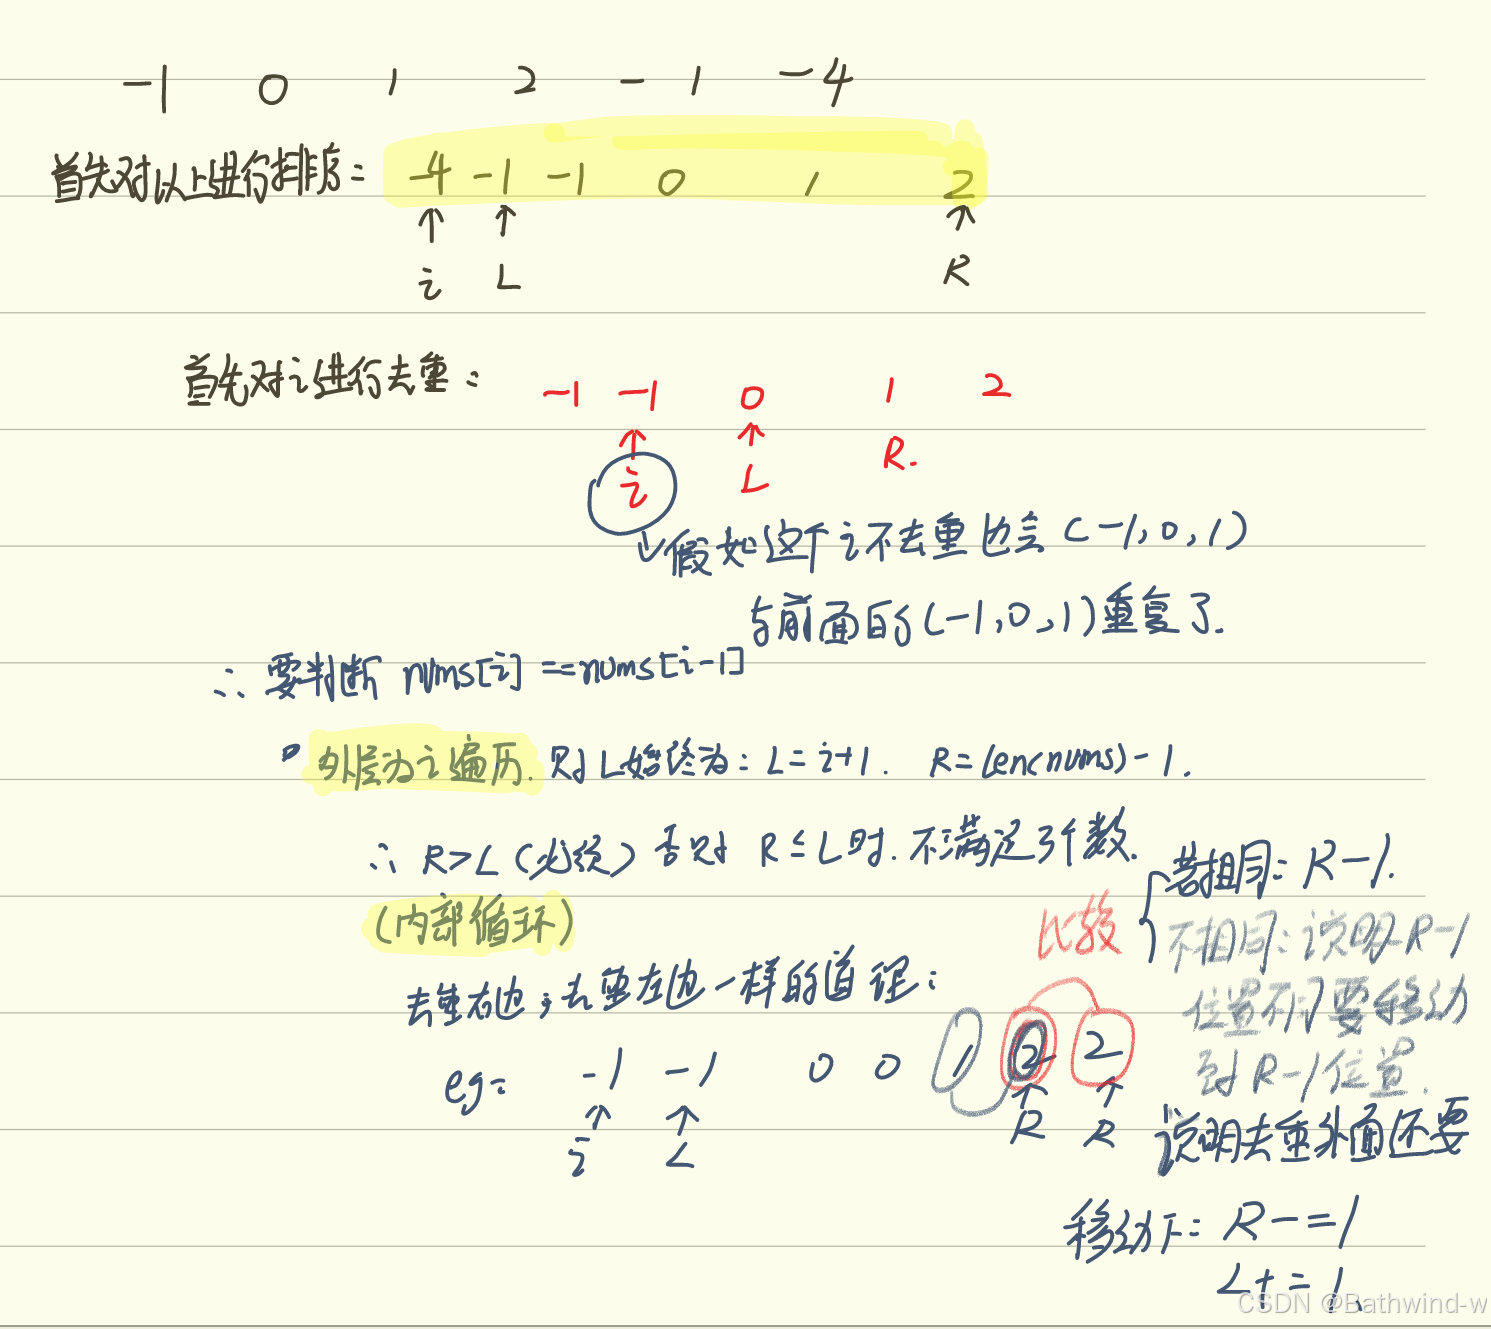 -1 0 1 2 -1 -4
首先对以上进行排序: -4 -1 -1 0 1 2
i L R
首先对i进行去重:
-1 -1 0 1 2
i L R.
假如这个i不去重也会(-1,0,1)
与前面的(-1,0,1)重复了.
∴要判断 nums[i] ==nums[i-1]
外层为i遍历. 则L始终为: L=i+1. R=len(nums)-1.
∴ R>L (必须) 否则 R≤L时. 不满足3个数.
(内部循环)
去重右边,去重左边一样的道理:
eg: -1 -1 0 0 1 2 2
i L R R
比较
若相同: R-1.
不相同:说明R-1
位置不同要移动
到R-1位置.
说明去重外面还要
移动下: R-=1
L+=1.
CSDN @Bathwind-w